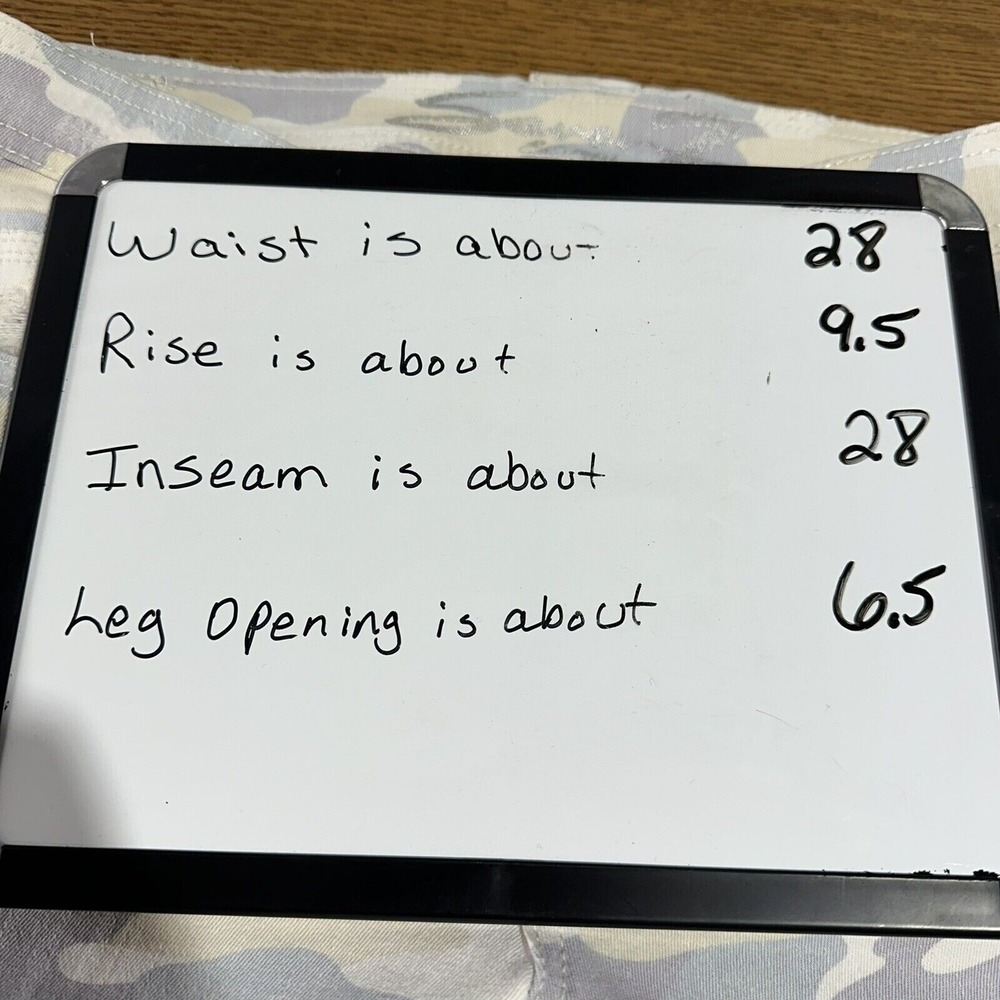 Waist is about 28
Rise is about 9.5
Inseam is about 28
Leg Opening is about 6.5